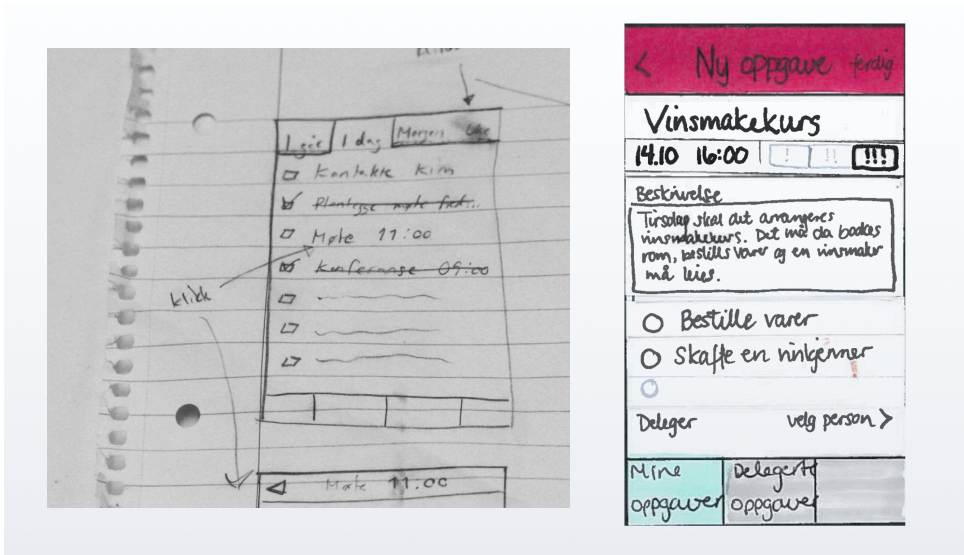 I går
I dag
Morgen
Kontakte Kim
Planlegge møte fred...
Møte 11:00
Konferanse 09:00
klikk
Møte 11:00
< Ny oppgave ferdig
Vinsmakekurs
14.10 16:00 ! !! !!!
Beskrivelse
Tirsdag skal det arrangeres
vinsmakekurs. Det må da bookes
rom, bestills varer og en vinsmaker
må leies.
Bestille varer
Skaffe en vinkjenner
Deleger velg person >
Mine
oppgaver
Delegerte
oppgaver